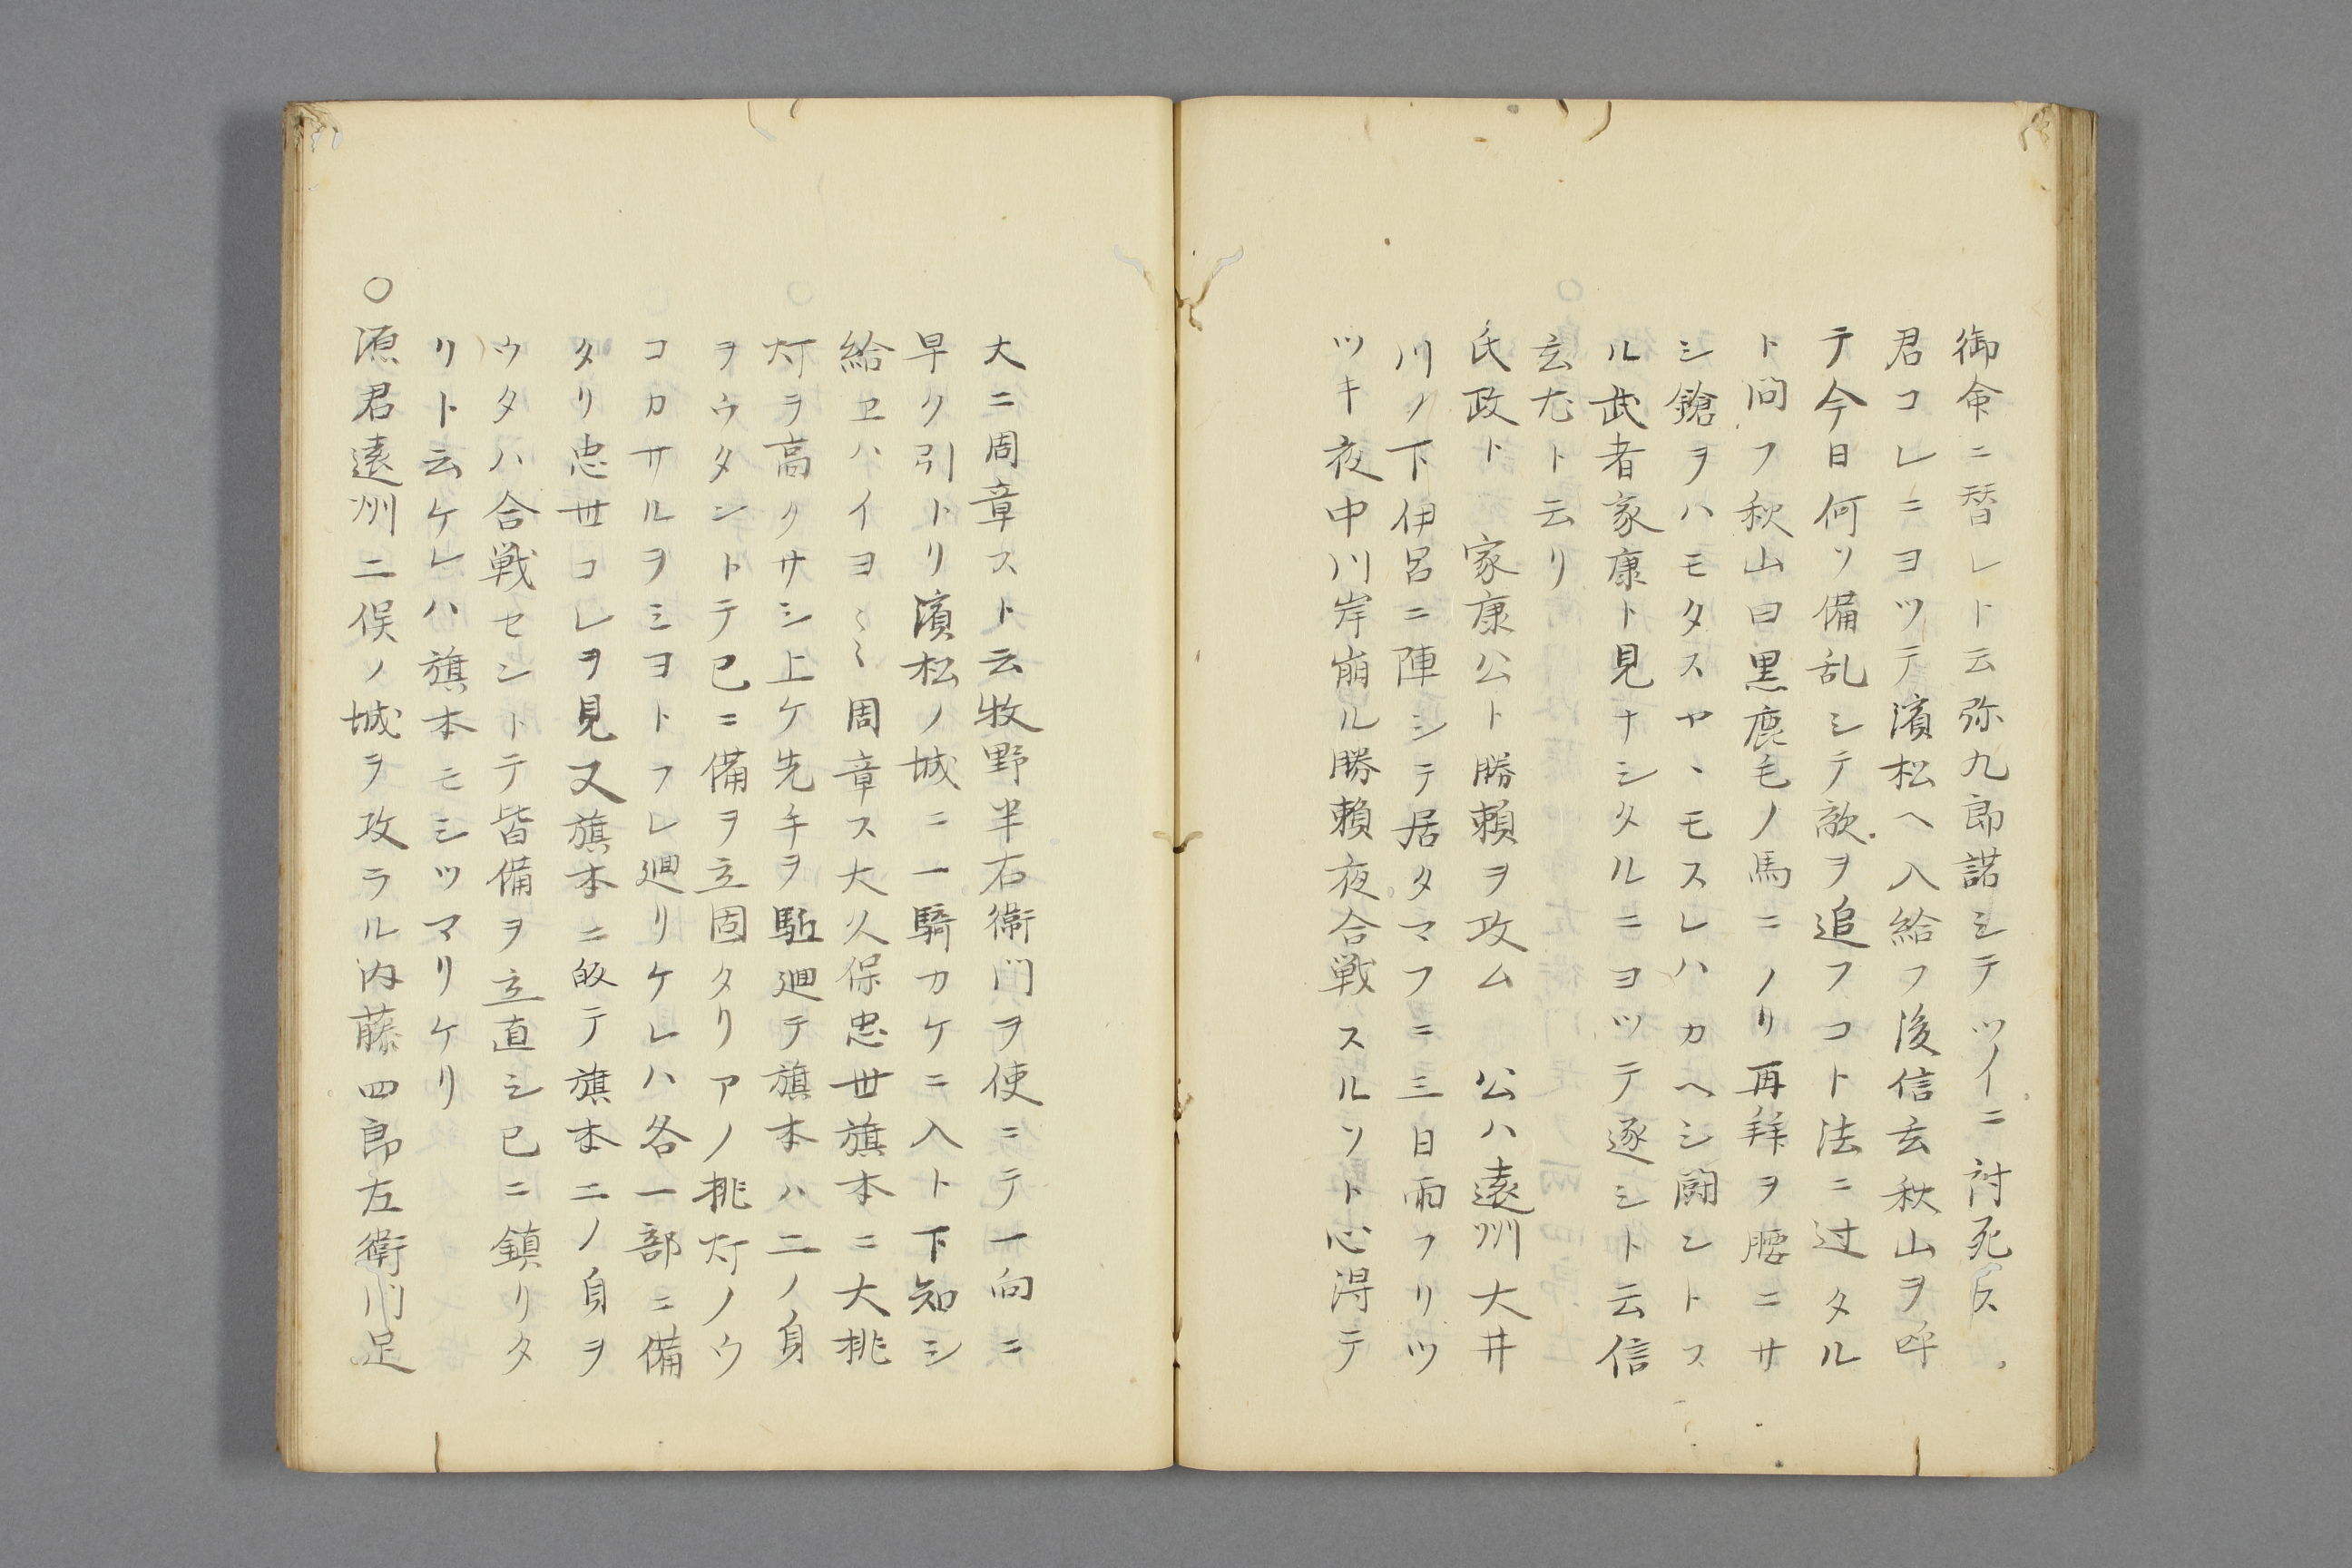 御命ニ替レト云弥九郎諾シテツイニ討死ス
君コレニヨツテ濱松ヘ入給フ後信玄秋山ヲ呼
テ今日何ソ備乱シテ敵ヲ追フコト法ニ过タル
ト問フ秋山曰黒鹿毛ノ馬ニノリ再拜ヲ腰ニサ
シ鎗ヲハモタスヤヽモスレハカヘシ闘ントス
ル武者家康ト見ナシタルニヨツテ逐シト云信
玄尤ト云リ
氏政ト　家康公ト勝頼ヲ攻ム　公ハ遠州大井
川ノ下伊呂ニ陣シテ居タマフニ三日雨フリツ
ツキ夜中川岸崩ル勝頼夜合戦スルソト心得テ
大ニ周章スト云牧野半右衛門ヲ使ニテ一向ニ
早ク引トリ濱松ノ城ニ一騎カケニ入ト下知シ
給ヱハイヨ〻〻周章ス大久保忠世旗本ニ大挑
灯ヲ高クサシ上ケ先手ヲ駈廻テ旗本ハ二ノ身
ヲウタントテ已ニ備ヲ立固タリアノ挑灯ノウ
コカサルヲミヨトフレ廻リケレハ各一部ニ備
タリ忠世コレヲ見又旗本ニ皈テ旗本二ノ身ヲ
ウタハ合戦セントテ皆備ヲ立直シ已ニ鎮リタ
リト云ケレハ旗本モシツマリケリ
○源君遠州二俣ノ城ヲ攻ラル内藤四郎左衛門足